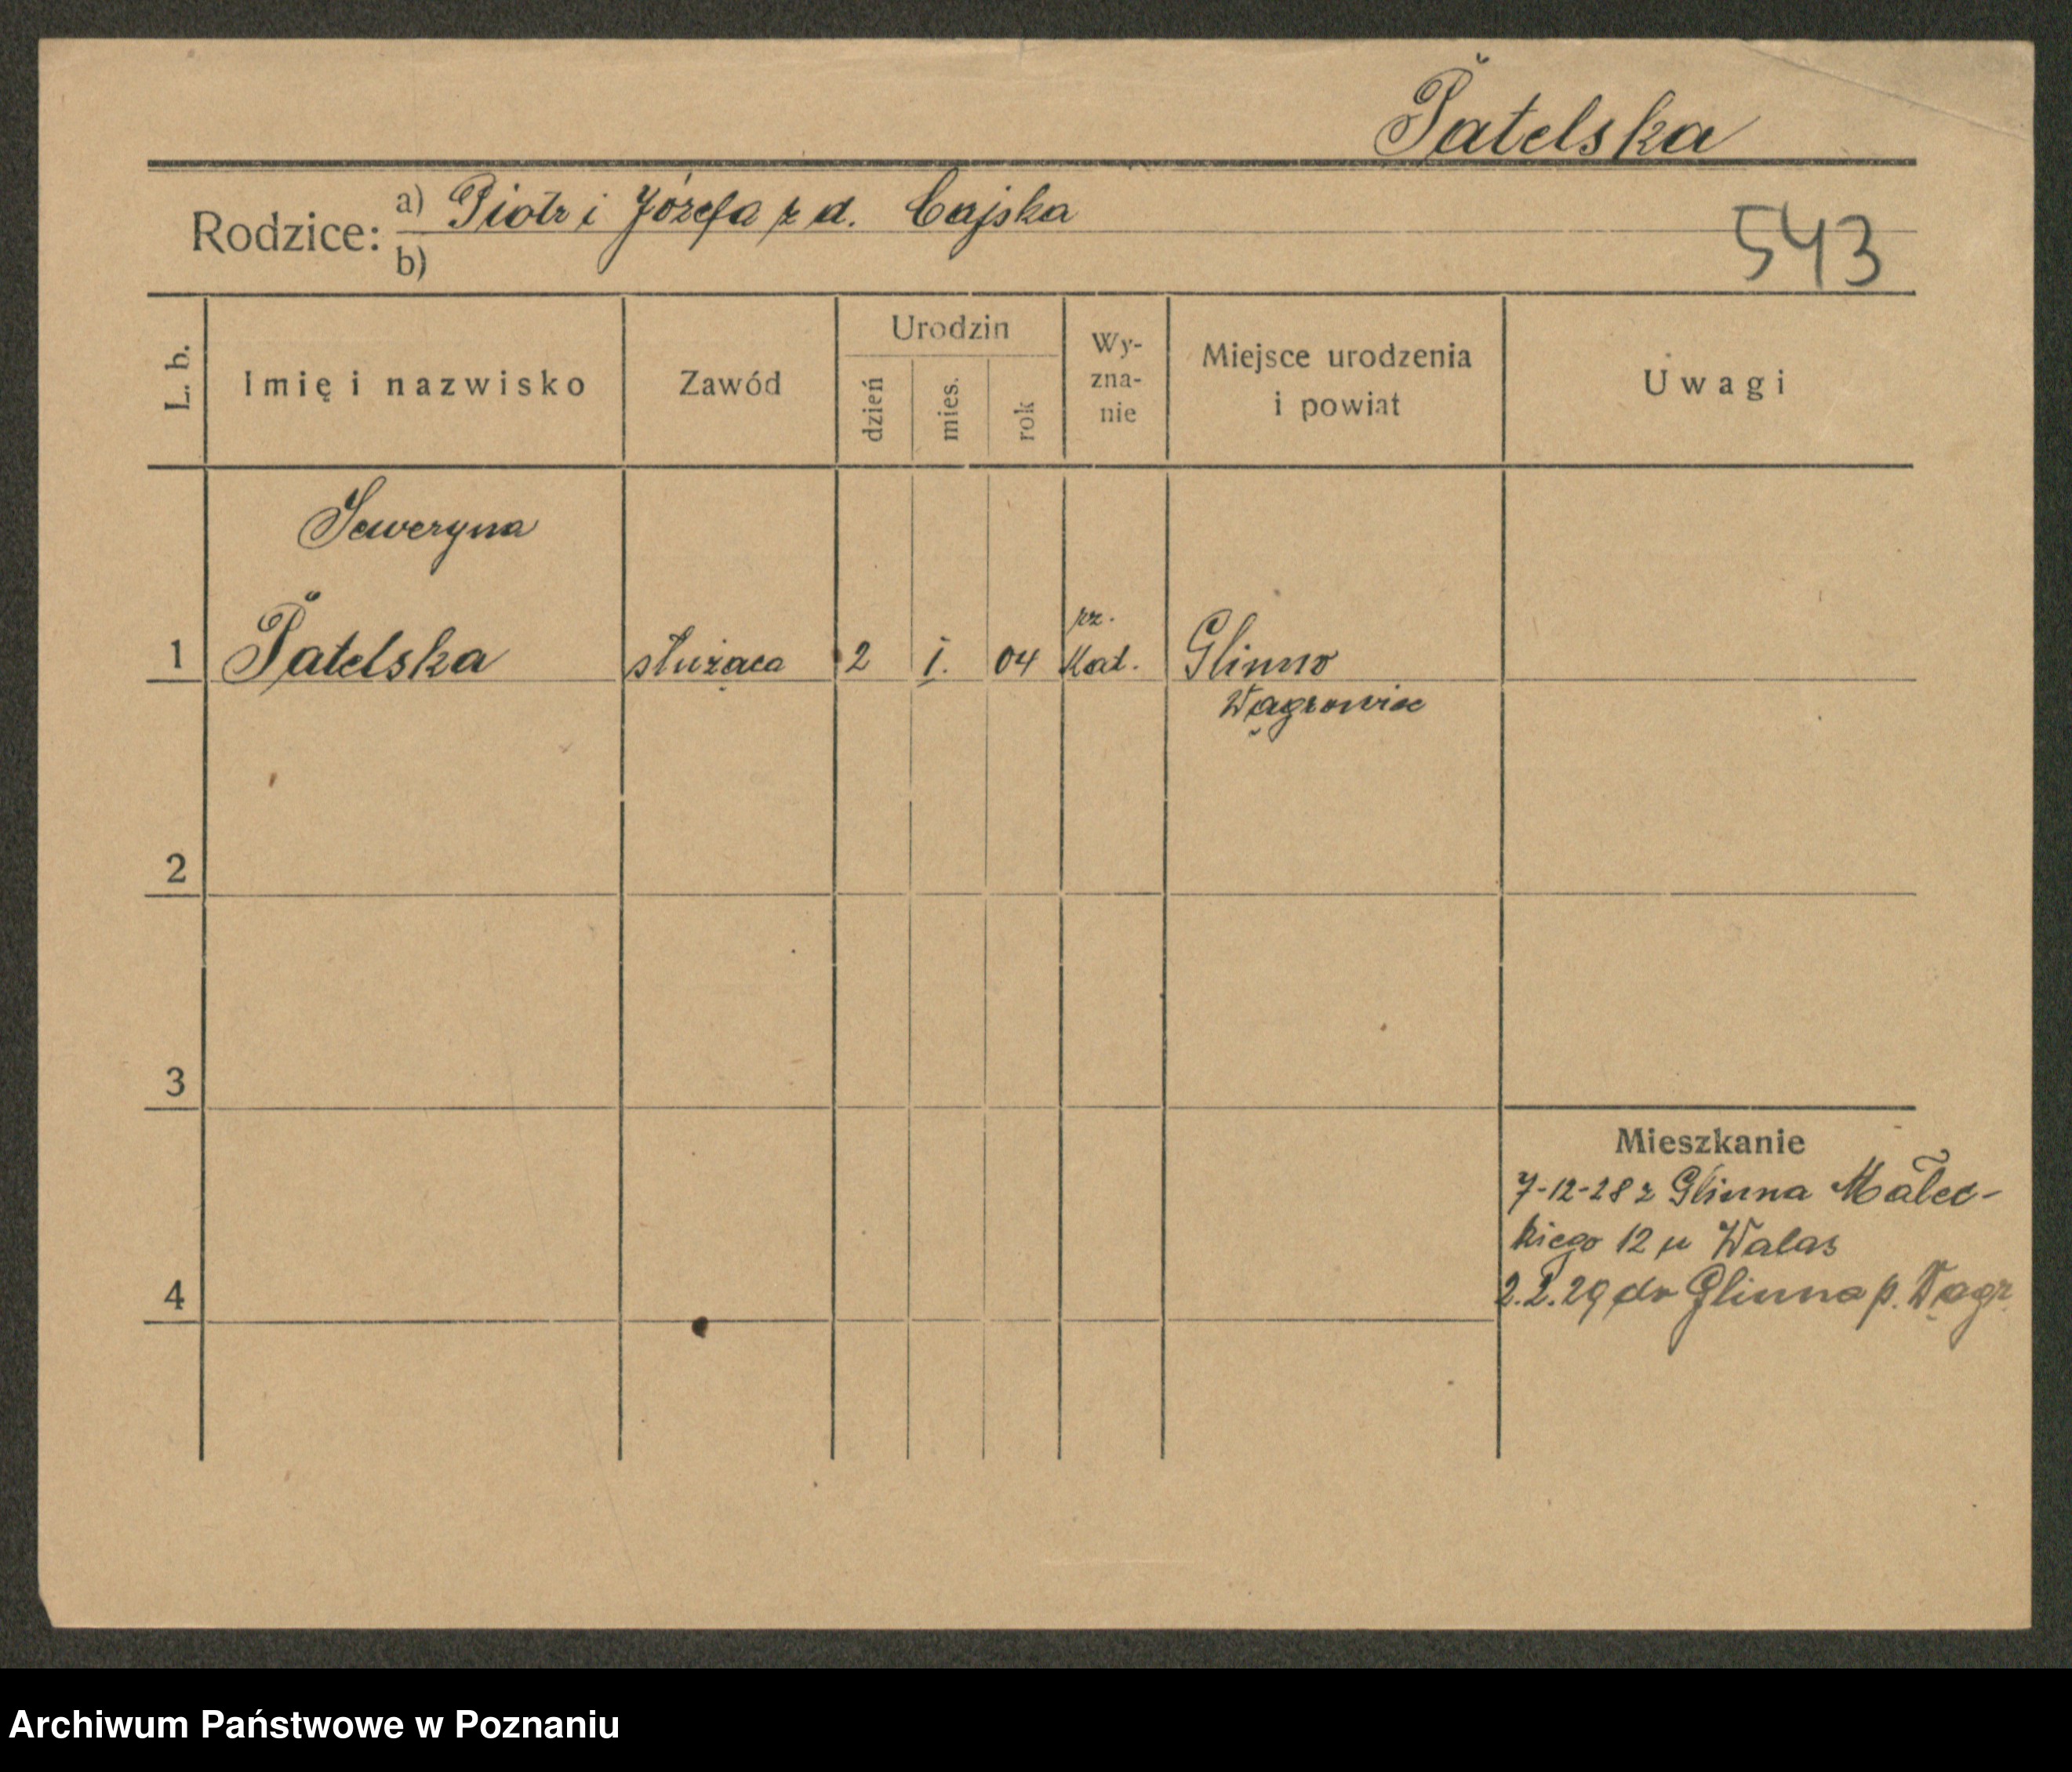 Patelska
Rodzice: a) Piotr i Józefa z d. Cajska
b)
543
L. b.
Imię i nazwisko
Zawód
Urodzin
dzień
mies.
rok
Wy-
zna-
nie
Miejsce urodzenia
i powiat
Uwagi
Seweryna
1 Patelska służąca 2 I. 04 rz. Kat. Glinno
Wągrowiec
2
3
Mieszkanie
7-12-28 z Glinna Małec-
kiego 12 u Walas
4
2.2.29 do Glinna p. Wągr.
Archiwum Państwowe w Poznaniu